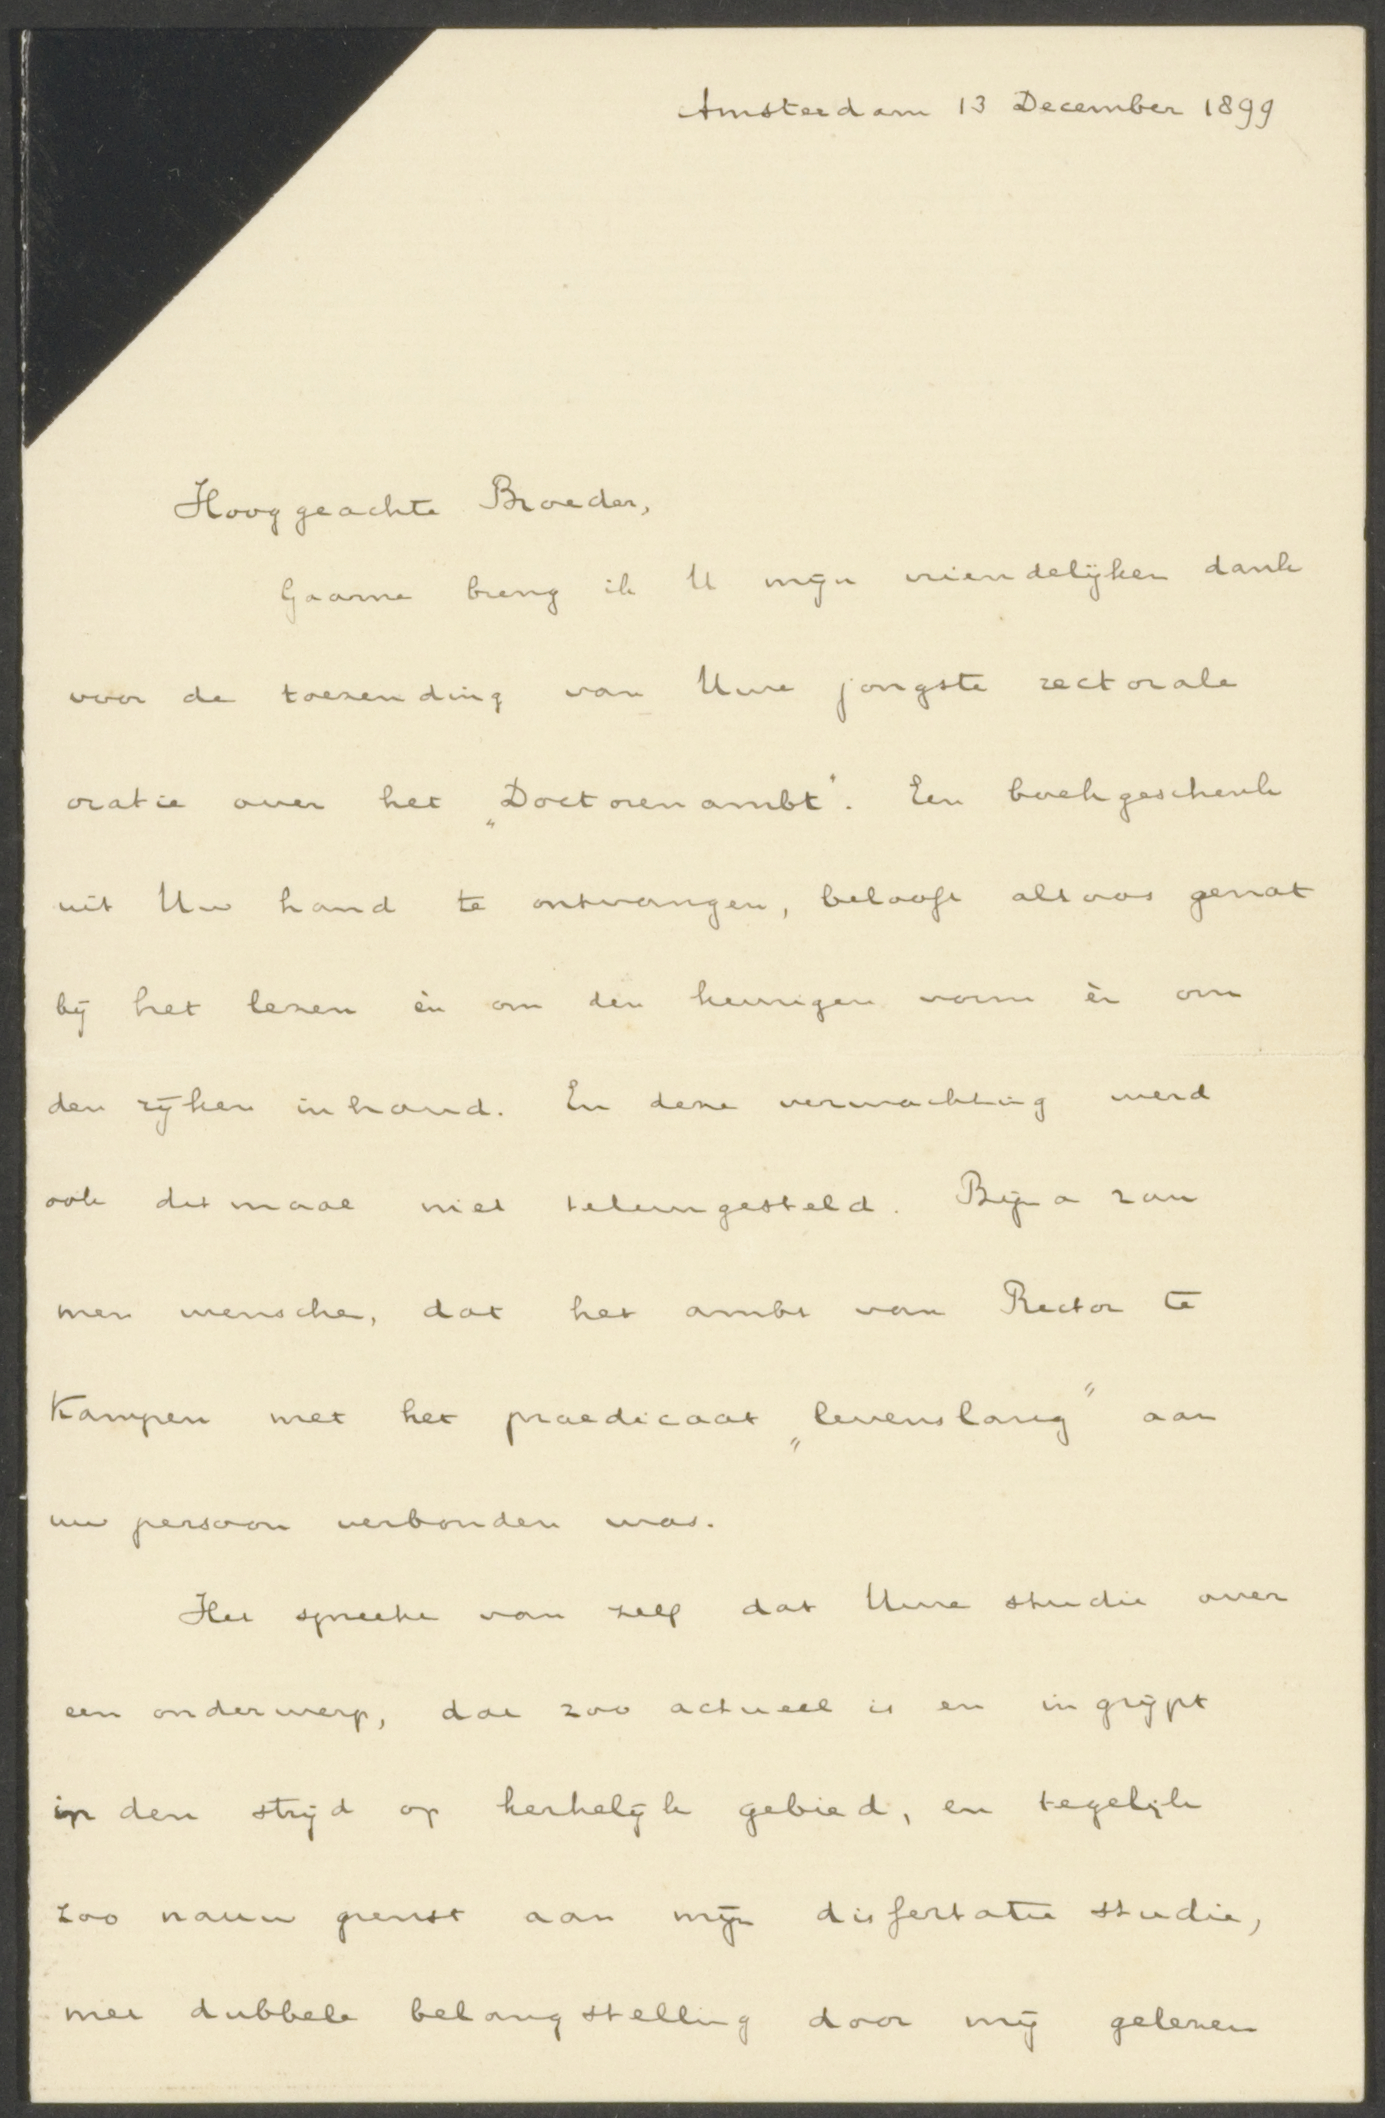 Amsterdam 13 December 1899
Hooggeachte Broeder,
Gaarne breng ik U mijn vriendelijken dank
voor de toezending van Uwe jongste rectorale
oratie over het „Doctorenambt". Een boekgeschenk
uit Uw hand te ontvangen, belooft altoos genot
bij het lezen èn om den keurigen vorm èn om
den rijken inhoud. En deze verwachting werd
ook ditmaal niet teleurgesteld. Bijna zou
men wenschen, dat het ambt van Rector te
Kampen met het praedicaat „levenslang" aan
uw persoon verbonden was.
Het spreekt van zelf dat Uwe studie over
een onderwerp, dat zoo actueel is en ingrijpt
in den strijd op kerkelijk gebied, en tegelijk
zoo nauw grenst aan mijn dissertatie studie,
met dubbele belangstelling door mij gelezen